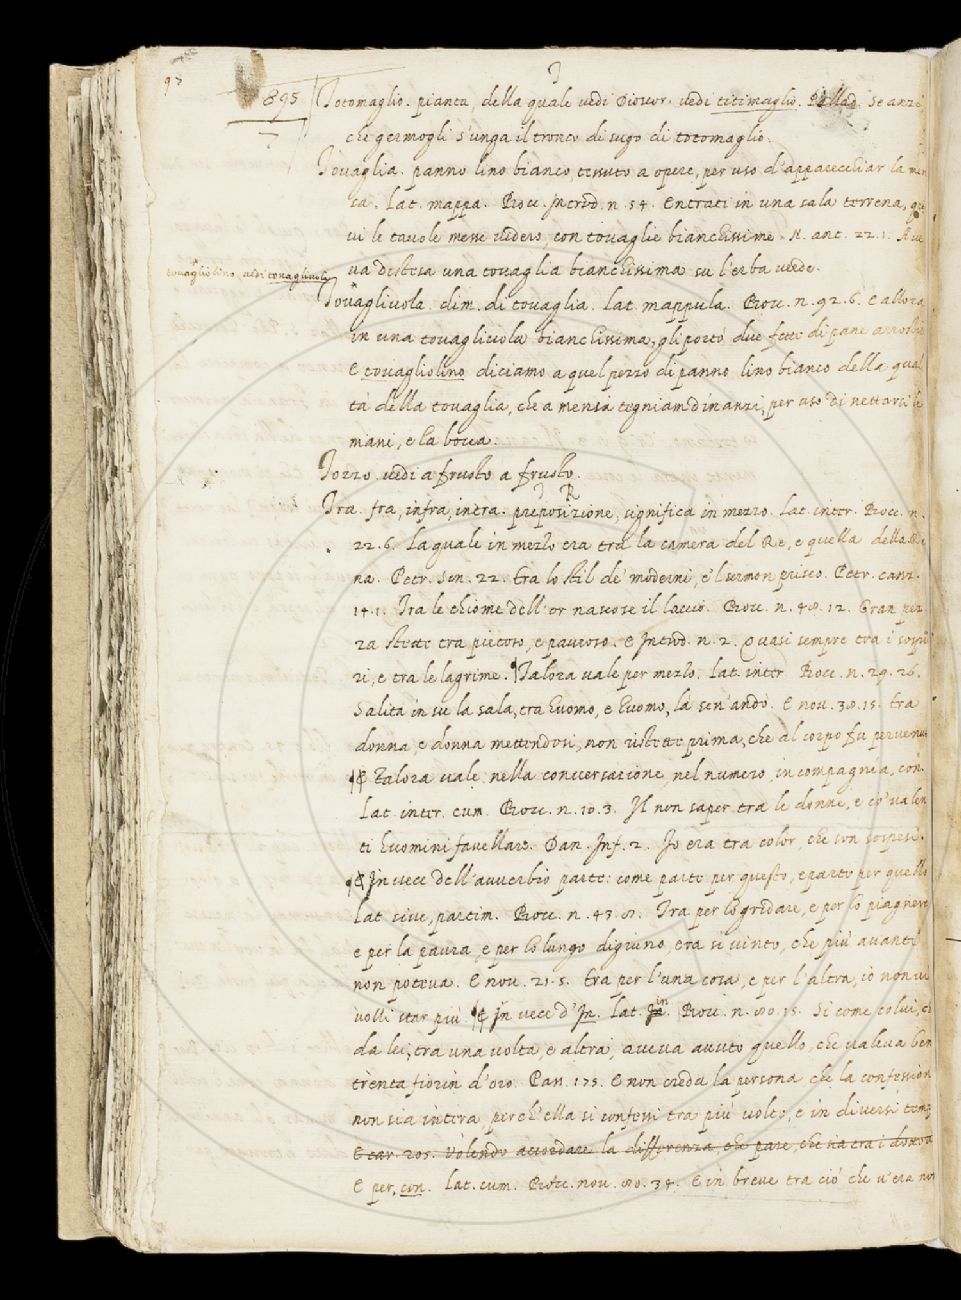 97
T
895
7
Totomaglio. pianta, della quale vedi Diosor. vedi titimaglio. Pallad. Se anzi
che germogli s'unga il tronco di sugo di totomaglio.
Tovaglia. panno lino bianco, tessuto a opere, per uso d'apparecchiar la men
sa. Lat. mappa. Bocc. Introd. n. 54. Entrati in una sala terrena, qui
vi le tavole messe videro, con tovaglie bianchissime. N. ant. 22. 1. Ave
va distesa una tovaglia bianchissima su l'erba verde.
tovagliolino, vedi tovagliuola
Tovagliuola. dim. di tovaglia. Lat. mappula. Bocc. n. 92. 6. E allora
in una tovagliuola bianchissima, gli portò due fette di pane arrostito
E tovagliolino diciamo a quel pezzo di panno lino bianco della qual
tà della tovaglia, che a mensa tegniam dinanzi, per uso di nettarci le
mani, e la bocca.
Tozzo. vedi a frusto a frusto.
T R
Tra. fra, infra, intra. preposizione, significa in mezzo. Lat. inter. Bocc. n.
22. 6. La quale in mezzo era tra la camera del Re, e quella della Rei
na. Petr. Son. 22. tra lo stil de' moderni, e 'l sermon prisco. Petr. canz.
14. 1. Tra le chiome dell'or nascose il laccio. Bocc. n. 48. 12. Gran pez
za stette tra pietoso, e pauroso. E Introd. n. 2. Quasi sempre tra i sospi
ri, e tra le lagrime. Talora vale per mezzo. Lat. inter Bocc. n. 29. 26.
Salita in su la sala, tra huomo, e huomo, là sen' andò. E nou. 38. 15. tra
donna, e donna mettendosi, non ristette prima, che al corpo fu pervenuta
E Talora vale, nella conversazione, nel numero, in compagnia, con.
Lat. inter. cum. Bocc. n. 10. 3. Il non saper tra le donne, e co' valen
ti huomini favellare. Dan. Inf. 2. Io era tra color, che son sospesi.
E In vece dell'avverbio parte: come parte per questo, e parte per quello
Lat. sive, partim. Bocc. n. 43. 8. Tra per lo gridare, e per lo piagnere
e per la paura, e per lo lungo digiuno, era sì vinto, che più avanti
non poteva. E nou. 21. 5. tra per l'una cosa, e per l'altra, io non vi
volli star più. E in vece d'In. Lat. in. Bocc. n. 80. 15. Si come colui, che
da lei, tra una volta, e altra, aveva avuto quello, che valeva ben
trenta fiorin d'oro. Pass. 175. E non creda la persona, che la confession
non sia intera, perch'ella si confessi tra più volte, e in diversi tempi
E car. 205. Volendo accordare la differenza, che pare, che sia tra i dottori
E per, con. Lat. cum. Bocc. nou. 80. 34. E in breve tra ciò che v'era non